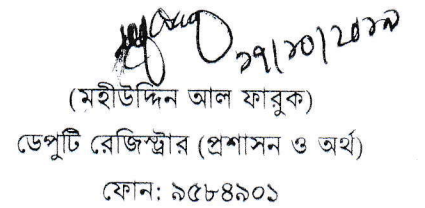 ১৭/১০/২০১৯
(মহীউদ্দিন আল ফারুক)
ডেপুটি রেজিস্ট্রার (প্রশাসন ও অর্থ)
ফোন: ৯৫৮৪৯০১